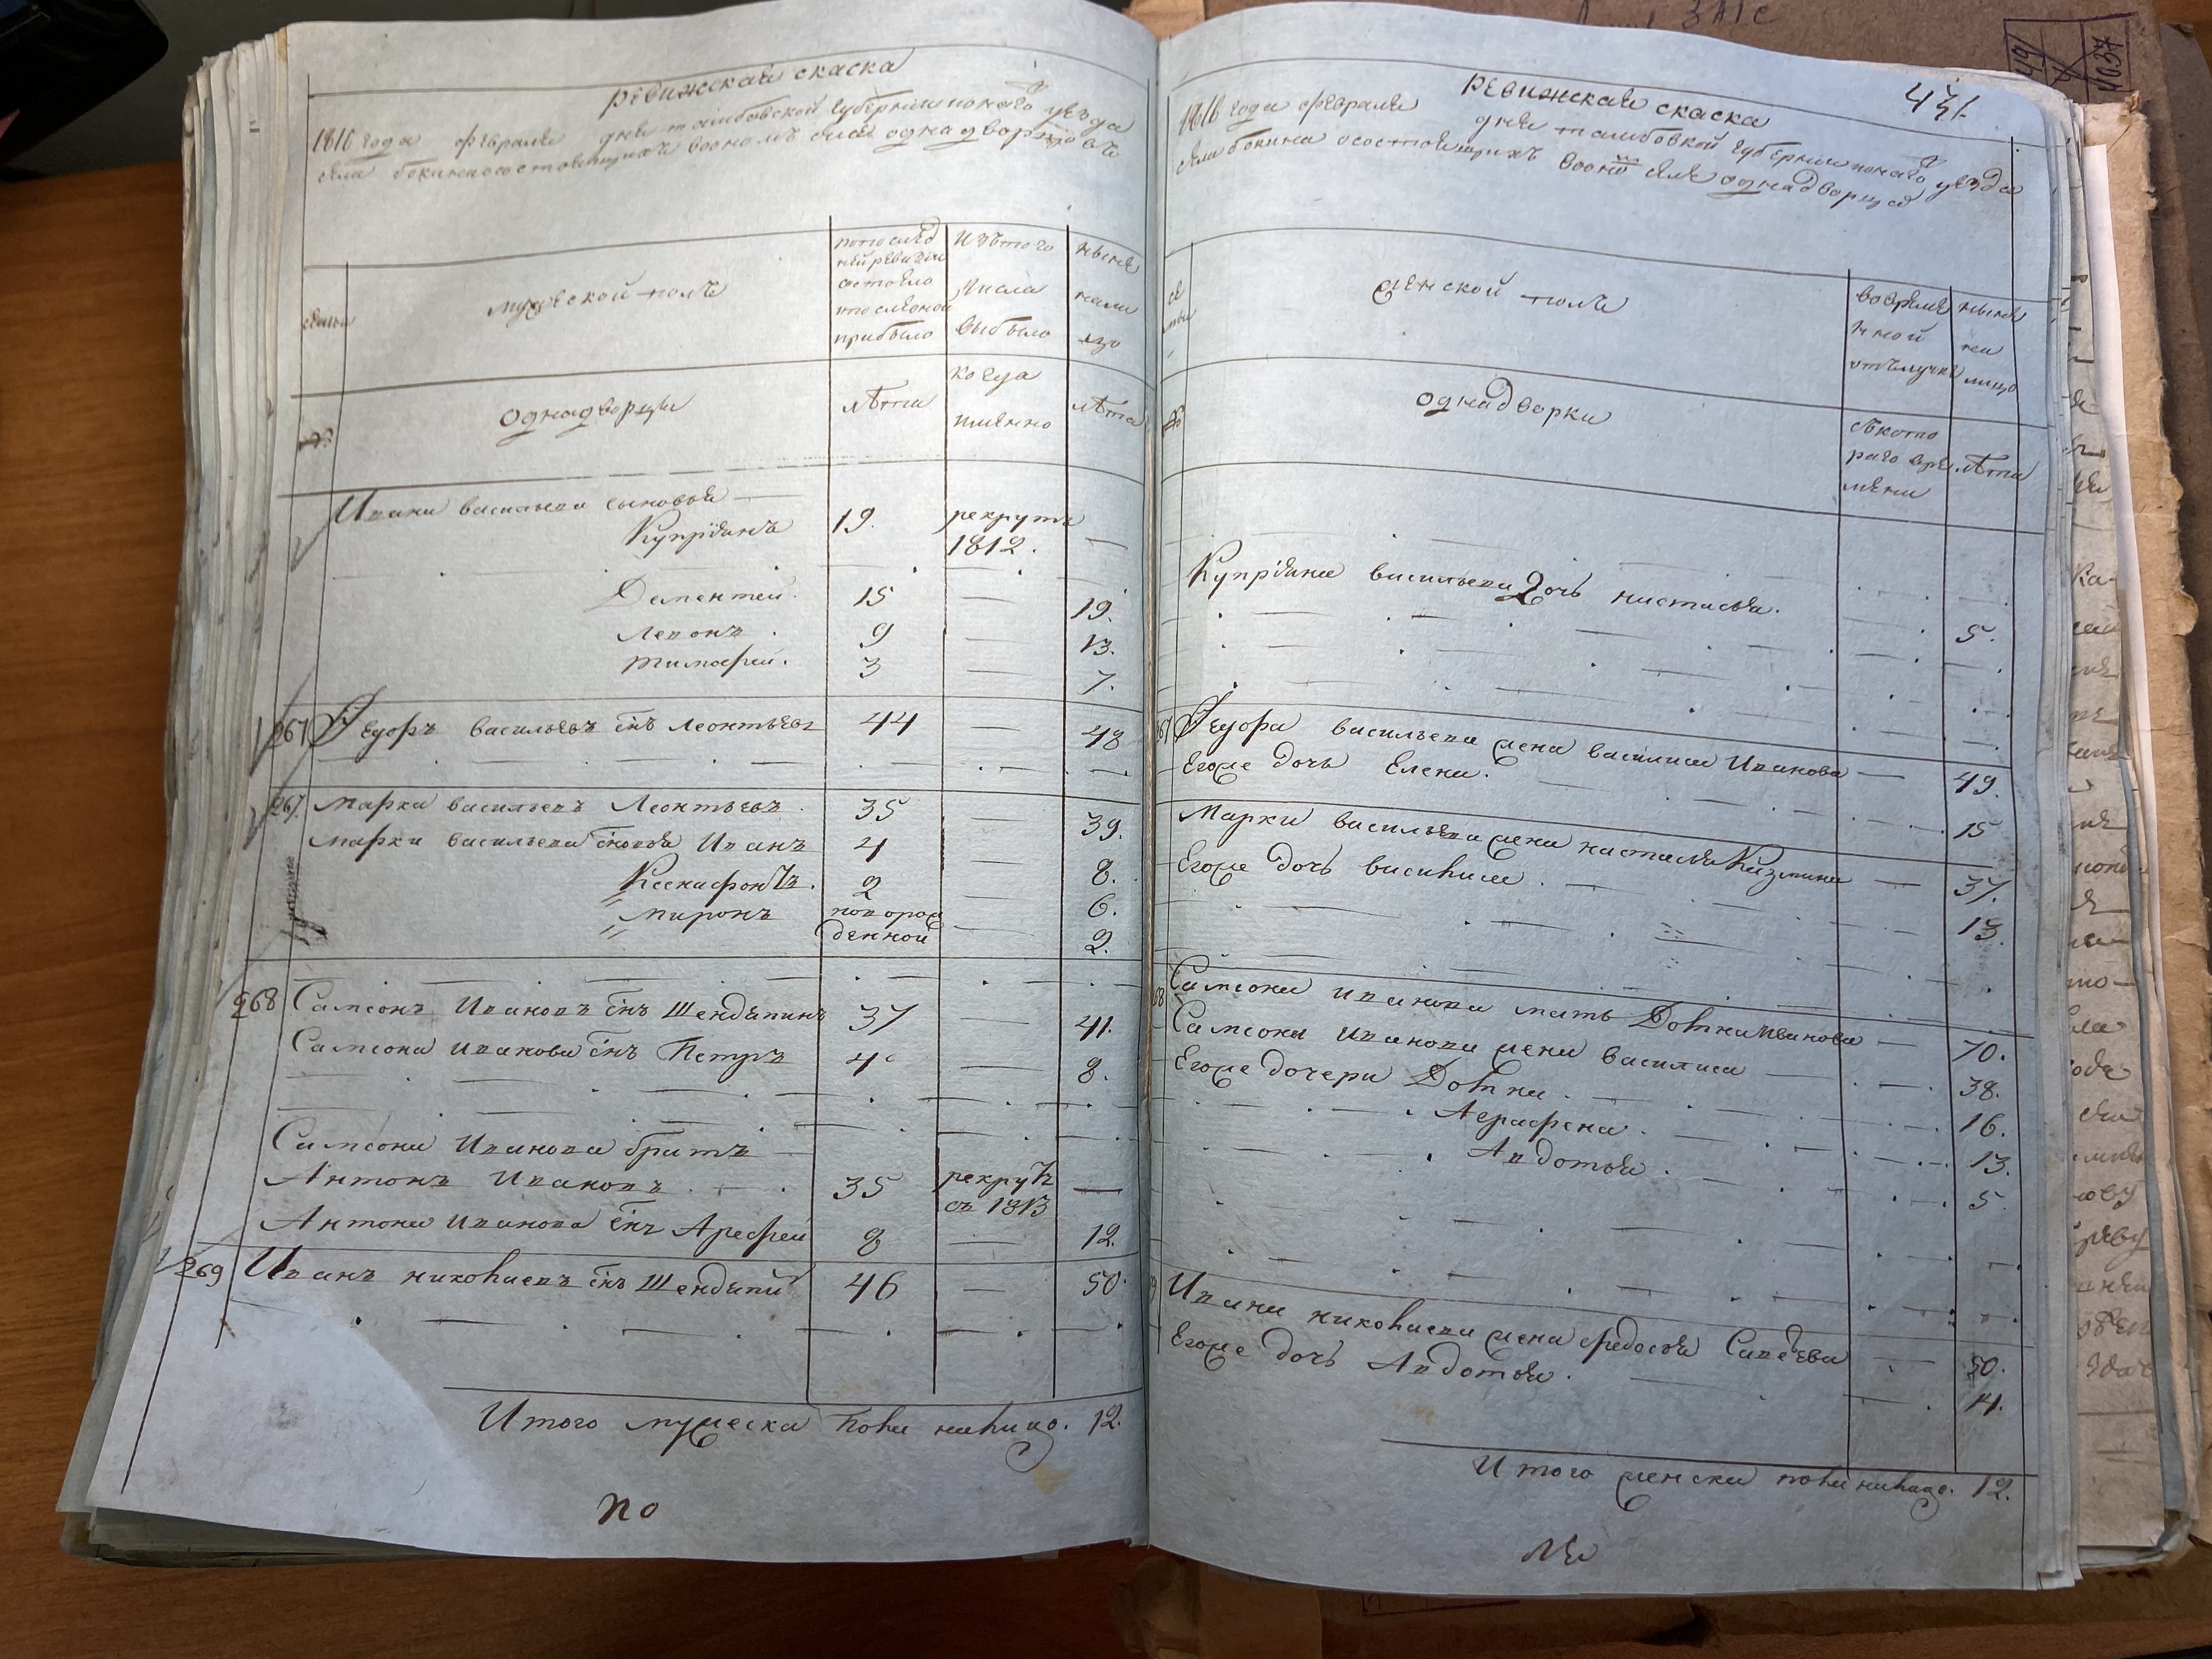 ревижская скаска
1816 года февраля дня тамбовской губернии понаго уезда
села бокина осостоящихъ воономъ селе однадворцовъ
семьи
мужеской полъ
попослед
ней ревизии
состояло
ипосленои
прибыло
изътого
числа
выбыло
ныне
нали
цо
№
однадворцы
лѣта
когда
имянно
лѣта
Ивана васильева сыновья
Купріянъ 19. рекрутъ
1812. —
Дементей. 15 — 19.
Левонъ. 9 — 13.
тимофей. 3 — 7.
267 Федоръ васильевъ снъ Леонтьевъ 44 — 48
267. Марка васильевъ Леонтьевъ 35 — 39.
Марки васильева сновья Иванъ 4 — 8.
Ксенафонтъ. 2 — 6.
миронъ новорож
денной — 2.
268 Самсонъ Ивановъ снъ Шендяпинъ 37 — 41.
Самсона Иванова снъ Петръ 4 — 8.
Самсона Иванова братъ
Антонъ Ивановъ 35 рекрутъ
съ 1813 —
Антона Иванова снъ Арефей 8 — 12.
269 Иванъ николаевъ снъ Шендяпи 46 — 50.
Итого мужеска пола налицо. 12.
по
ревижская скаска
431.
1816 года февраля дня тамбовкой губернии понаго уезда
села бокина осостоящихъ вооно селе однадворца
се
мьи
женской полъ
вовремя
нной
отълучке
ныне
на
лицо
№
однадворки
съкото
раго вре
мени
лѣта
Купріяна васильева дочь настасья.
5.
267 Федора васильева жена василиса Иванова — 49.
Егоже дочь Елена. 15
Марки васильева жена настасья Кузмина — 37.
Егоже дочь василиса. 13.
68 Самсона иванова мать Домна Иванова — 70.
Самсона Иванова жена василиса — 38.
Егоже дочери Домна. 16.
Аграфена. 13.
Авдотья. 5.
Ивана николаева жена федосья Савельева 50.
Егоже дочь Авдотья. 14.
Итого женска пола налицо. 12.